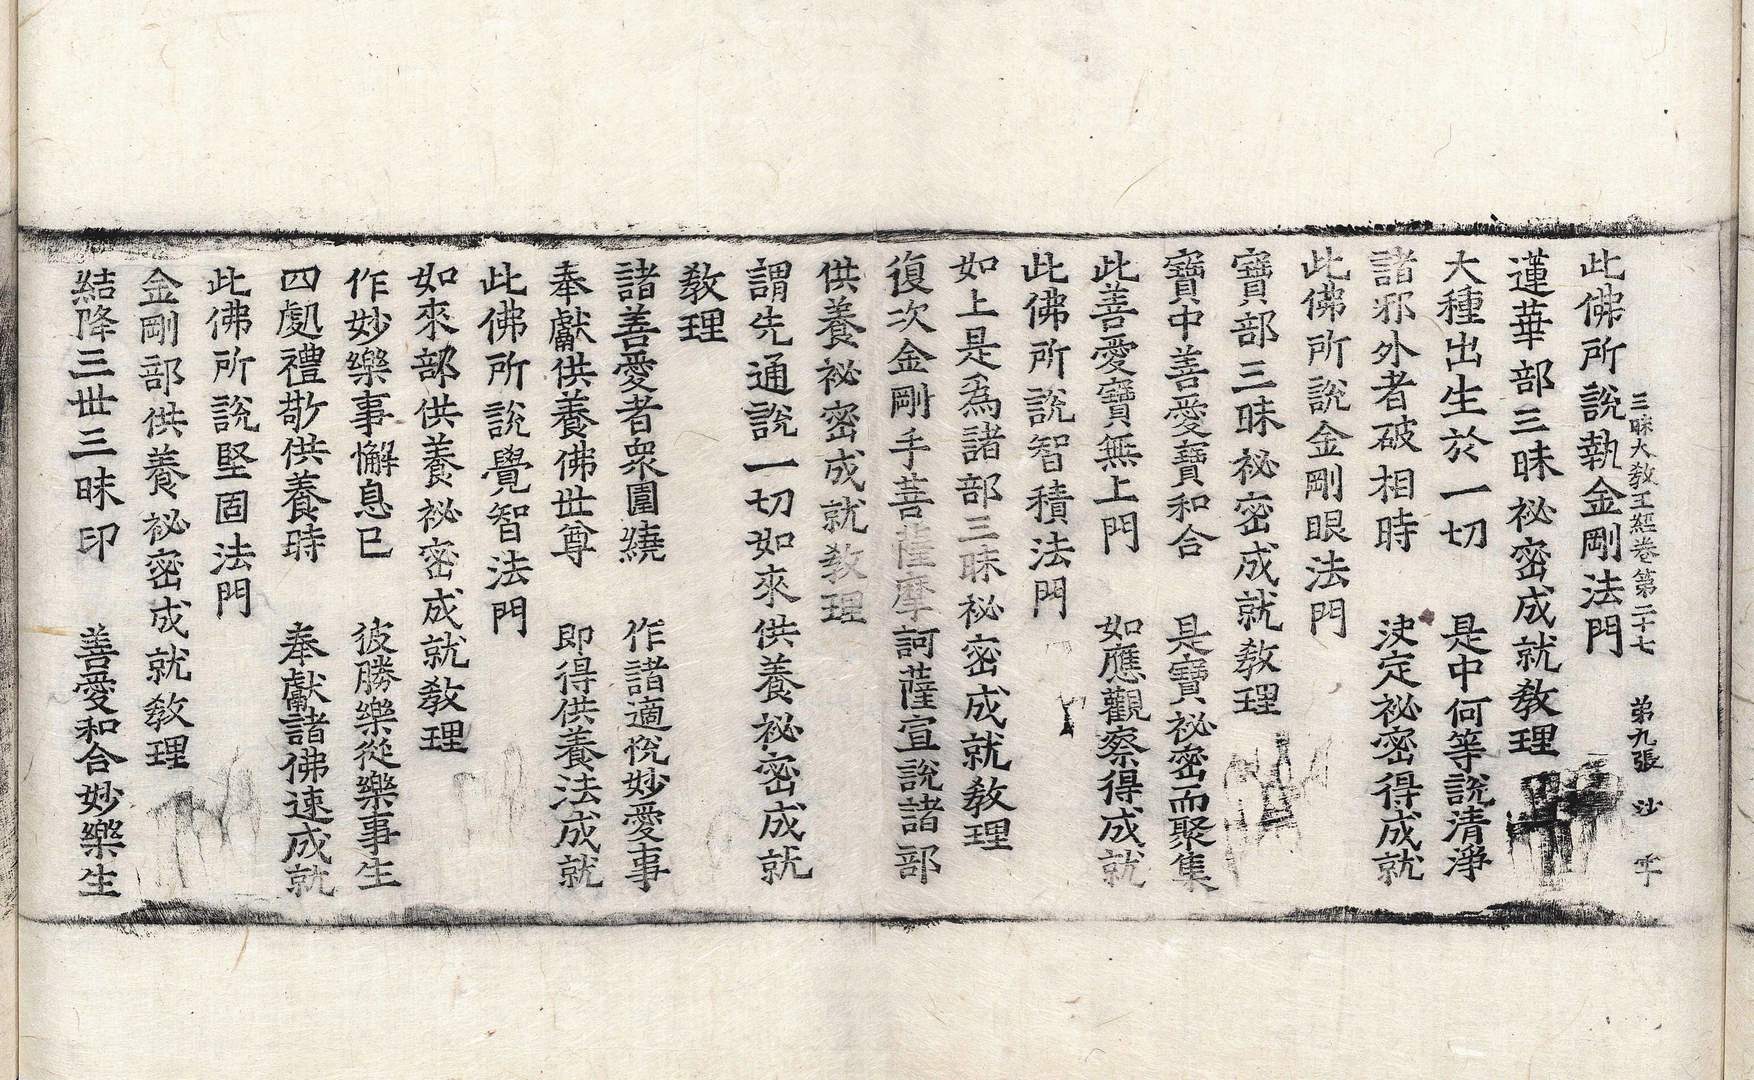 三昧大教王經卷第二十七 弟九張 沙 呼
此佛所說執金剛法門
蓮華部三昧祕密成就教理
大種出生於一切 是中何等說清淨
諸邪外者破相時 決定祕密得成就
此佛所說金剛眼法門
寶部三昧祕密成就教理
寶中善愛寶和合 是寶祕密而聚集
此善愛寶無上門 如應觀察得成就
此佛所說智積法門
如上是為諸部三昧祕密成就教理
復次金剛手菩薩摩訶薩宣說諸部
供養祕密成就教理
謂先通說一切如來供養祕密成就
教理
諸善愛者衆圍繞 作諸適悅妙愛事
奉獻供養佛世尊 即得供養法成就
此佛所說覺智法門
如來部供養祕密成就教理
作妙樂事懈息已 彼勝樂從樂事生
四處禮敬供養時 奉獻諸佛速成就
此佛所說堅固法門
金剛部供養祕密成就教理
結降三世三昧印 善愛和合妙樂生